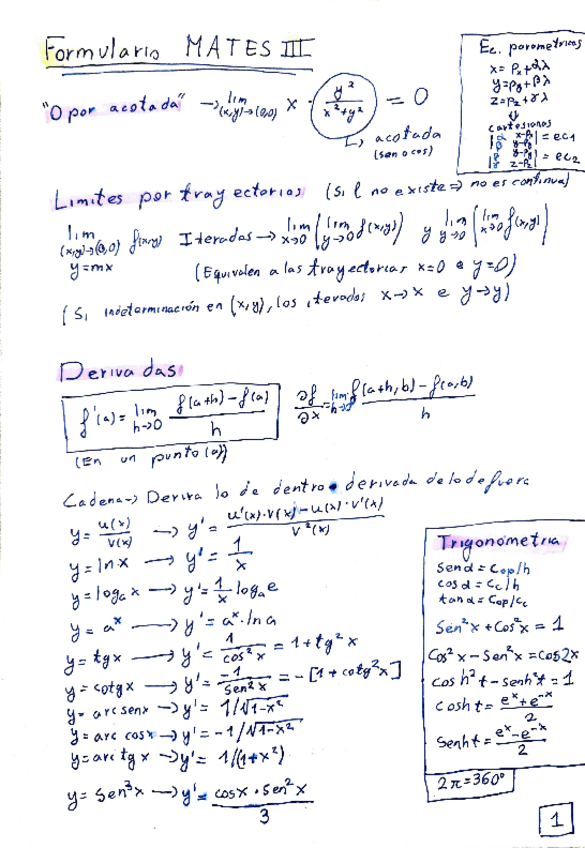 Formulario MATES III
Ec. parametricas
x = Px + αλ
y = Py + βλ
z = Pz + γλ
⇓
cartesianas
|α x-Px|
|β y-Py| = ec1
|β y-Py|
|γ z-Pz| = ec2
"0 por acotada" → lim (x,y)→(0,0) x · y²/(x²+y²) = 0
↳ acotada
(sen o cos)
Limites por trayectorias (Si l no existe ⇒ no es continua)
lim (x,y)→(0,0) f(x,y) Iterados → lim x→0 (lim y→0 f(x,y)) y lim y→0 (lim x→0 f(x,y))
y=mx (Equivalen a las trayectorias x=0 e y=0)
(Si indeterminación en (x,y), los iterados x→x e y→y)
Derivadas
f'(a) = lim h→0 (f(a+h) - f(a))/h
∂f/∂x = lim h→0 (f(a+h,b) - f(a,b))/h
(En un punto (a))
Cadena → Deriva lo de dentro • derivada de lo de fuera
y = u(x)/v(x) → y' = (u'(x)·v(x) - u(x)·v'(x))/v²(x)
y = ln x → y' = 1/x
y = logₐ x → y' = 1/x logₐ e
y = aˣ → y' = aˣ · ln a
y = tg x → y' = 1/cos² x = 1 + tg² x
y = cotg x → y' = -1/sen² x = -[1 + cotg² x]
y = arc sen x → y' = 1/√1-x²
y = arc cos x → y' = -1/√1-x²
y = arc tg x → y' = 1/(1+x²)
y = sen³ x → y' = cos x · sen² x/3
Trigonometria
sen α = Cop/h
cos α = Cc/h
tan α = Cop/Cc
Sen² x + Cos² x = 1
Cos² x - Sen² x = cos 2x
cosh² t - senh² t = 1
Cosh t = (eˣ + e⁻ˣ)/2
Senh t = (eˣ - e⁻ˣ)/2
2π = 360°
1